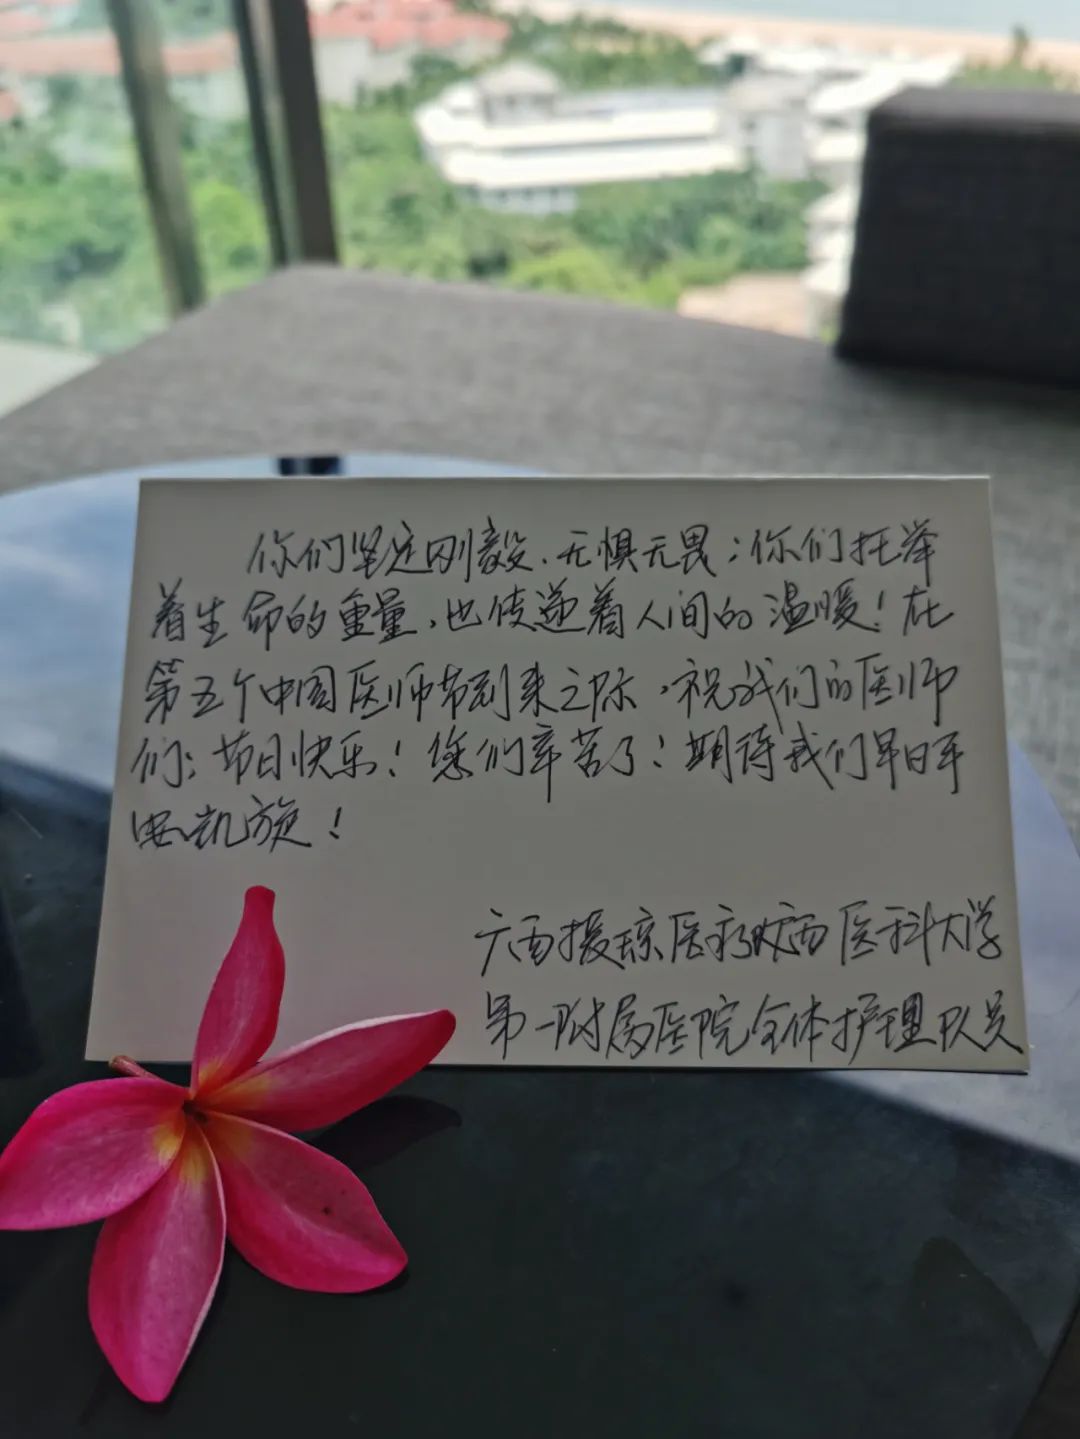 你们坚定刚毅、无惧无畏；你们托举
着生命的重量，也传递着人间的温暖！在
第五个中国医师节到来之际，祝我们的医师
们：节日快乐！您们辛苦了！期待我们早日平
安凯旋！
广西援琼医疗队广西医科大学
第一附属医院全体护理队员